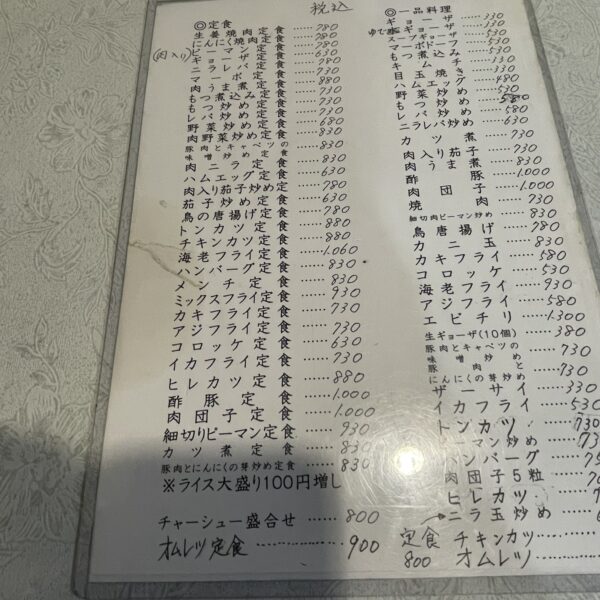 税込
◎定食
生姜焼肉定食……780
にんにく焼肉定食……780
(肉入り)ピーマン定食……730
ギョーザ定食
ニラレバ定食……730
マーボ定食……730
肉うま煮定食……830
もつ煮込み定食……730
もつ炒め定食……730
レバ炒め定食……730
野菜炒め定食……680
肉野菜炒め定食……830
豚肉とキャベツの味噌炒め定食……830
肉ニラ定食……830
ハムエッグ定食……630
肉入り茄子炒め定……780
茄子炒め定食……630
鳥の唐揚げ定食……780
トンカツ定食……880
チキンカツ定食……880
海老フライ定食……1.060
ハンバーグ定食……830
メンチ定食……830
ミックスフライ定食……930
カキフライ定食……730
アジフライ定食……730
コロッケ定食……630
イカフライ定食……730
ヒレカツ定食……880
酢豚定食……1.000
肉団子定食……1.000
細切りピーマン定食……930
カツ煮定食……830
豚肉とにんにくの芽炒め定食……830
※ライス大盛り100円増し
チャーシュー盛合せ……800
オムレツ定食……900
◎一品料理
ギョーザ……330
スープギョーザ……330
マーボドーフ……530
もつ煮込み……530
キムチ……330
目玉焼き……330
ハムエッグ……480
野菜炒め……530
もつ炒め……580
レバ炒め……580
ニラレバ炒め……630
カツ煮……730
肉入り茄子……730
肉うま煮……730
酢豚……1.000
肉団子……1.000
焼肉……730
細切肉ピーマン炒め……830
鳥唐揚げ……780
カニ玉……830
カキフライ……580
コロッケ……530
海老フライ……930
アジフライ……580
エビチリ……1.300
生ギョーザ(10個)……380
豚肉とキャベツの味噌炒め……730
豚肉とにんにくの芽炒め……730
ザーサイ……330
イカフライ……530
トンカツ……730
ーマン炒め……73
ンバーグ……
肉団子5粒……
ヒレカツ……
→ニラ玉炒め……
定食 チキンカツ……
800 オムレツ……